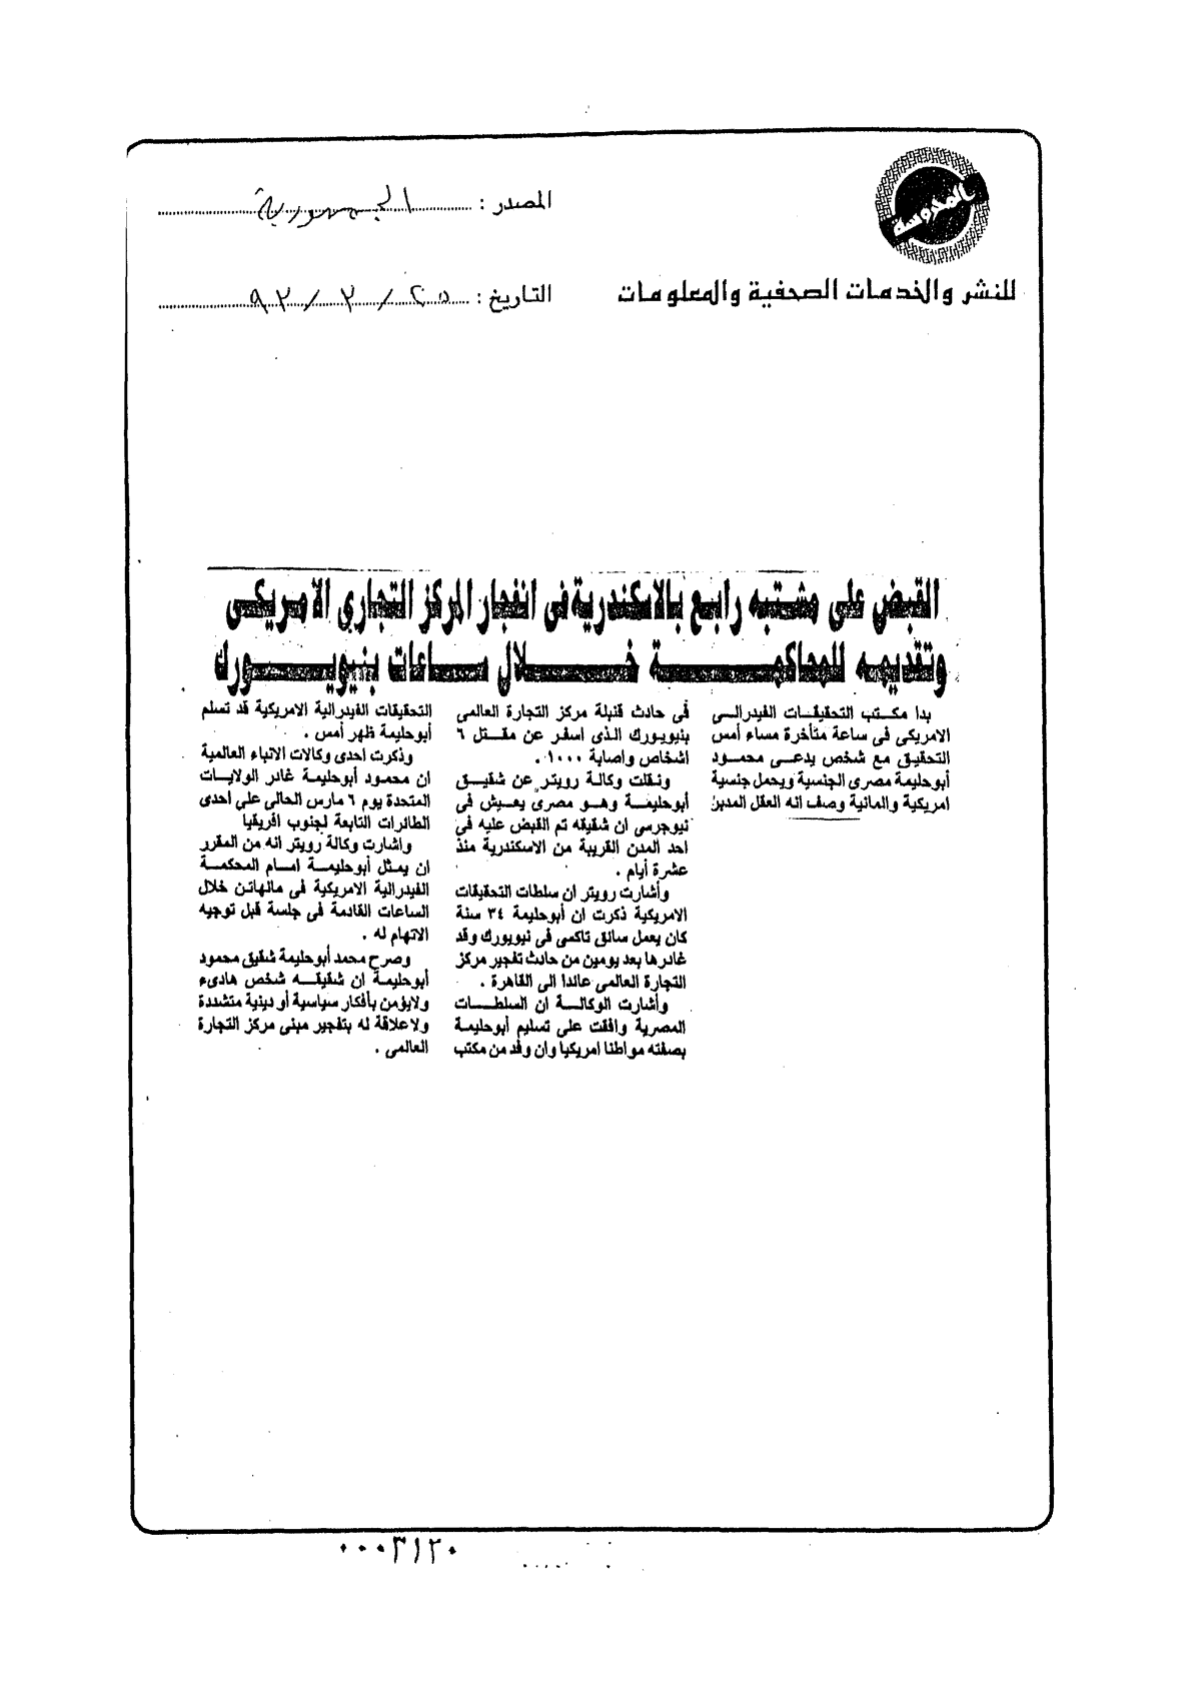 المحروسة
للنشر والخدمات الصحفية والمعلومات
المصدر : الجمهورية
التاريخ : ٢٥ / ٣ / ٩٣
القبض على مشتبه رابع بالاسكندرية فى انفجار المركز التجاري الأمريكى
وتقديمه للمحاكمة خلال ساعات بنيويورك
بدا مكتب التحقيقات الفيدرالى
الامريكى فى ساعة متأخرة مساء أمس
التحقيق مع شخص يدعى محمود
أبوحليمة مصرى الجنسية ويحمل جنسية
امريكية والمانية وصف انه العقل المدبر
فى حادث قنبلة مركز التجارة العالمى
بنيويورك الذى اسفر عن مقتل ٦
اشخاص واصابة ١٠٠٠ .
ونقلت وكالة رويتر عن شقيق
أبوحليمة وهو مصرى يعيش فى
نيوجرسى ان شقيقه تم القبض عليه فى
احد المدن القريبة من الاسكندرية منذ
عشرة أيام .
وأشارت رويتر ان سلطات التحقيقات
الامريكية ذكرت ان أبوحليمة ٣٤ سنة
كان يعمل سائق تاكسى فى نيويورك وقد
غادرها بعد يومين من حادث تفجير مركز
التجارة العالمى عائدا الى القاهرة .
وأشارت الوكالة ان السلطات
المصرية وافقت على تسليم أبوحليمة
بصفته مواطنا امريكيا وان وفد من مكتب
التحقيقات الفيدرالية الامريكية قد تسلم
أبوحليمة ظهر أمس .
وذكرت احدى وكالات الانباء العالمية
ان محمود أبوحليمة غادر الولايات
المتحدة يوم ٦ مارس الحالى على احدى
الطائرات التابعة لجنوب افريقيا
واشارت وكالة رويتر انه من المقرر
ان يمثل أبوحليمة امام المحكمة
الفيدرالية الامريكية فى مانهاتن خلال
الساعات القادمة فى جلسة قبل توجيه
الاتهام له .
وصرح محمد أبوحليمة شقيق محمود
أبوحليمة ان شقيقه شخص هادىء
ولايؤمن بأفكار سياسية أو دينية متشددة
ولاعلاقة له بتفجير مبنى مركز التجارة
العالمى .
٠٠٠٣١٢٠